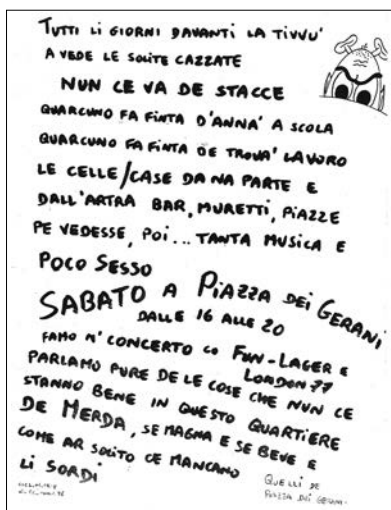 TUTTI LI GIORNI DAVANTI LA TIVVU'
A VEDE LE SOLITE CAZZATE
NUN CE VA DE STACCE
QUARCUNO FA FINTA D'ANNA' A SCOLA
QUARCUNO FA FINTA DE TROVA' LAVORO
LE CELLE/CASE DA NA PARTE E
DALL'ARTRA BAR, MURETTI, PIAZZE
PE VEDESSE, POI... TANTA MUSICA E
POCO SESSO
SABATO A PIAZZA DEI GERANI
DALLE 16 ALLE 20
FAMO N' CONCERTO CO FUN-LAGER E
LONDON 77
PARLAMO PURE DE LE COSE CHE NUN CE
STANNO BENE IN QUESTO QUARTIERE
DE MERDA, SE MAGNA E SE BEVE E
COME AR SOLITO CE MANCANO
LI SORDI
QUELLI DE
PIAZZA DEI GERANI